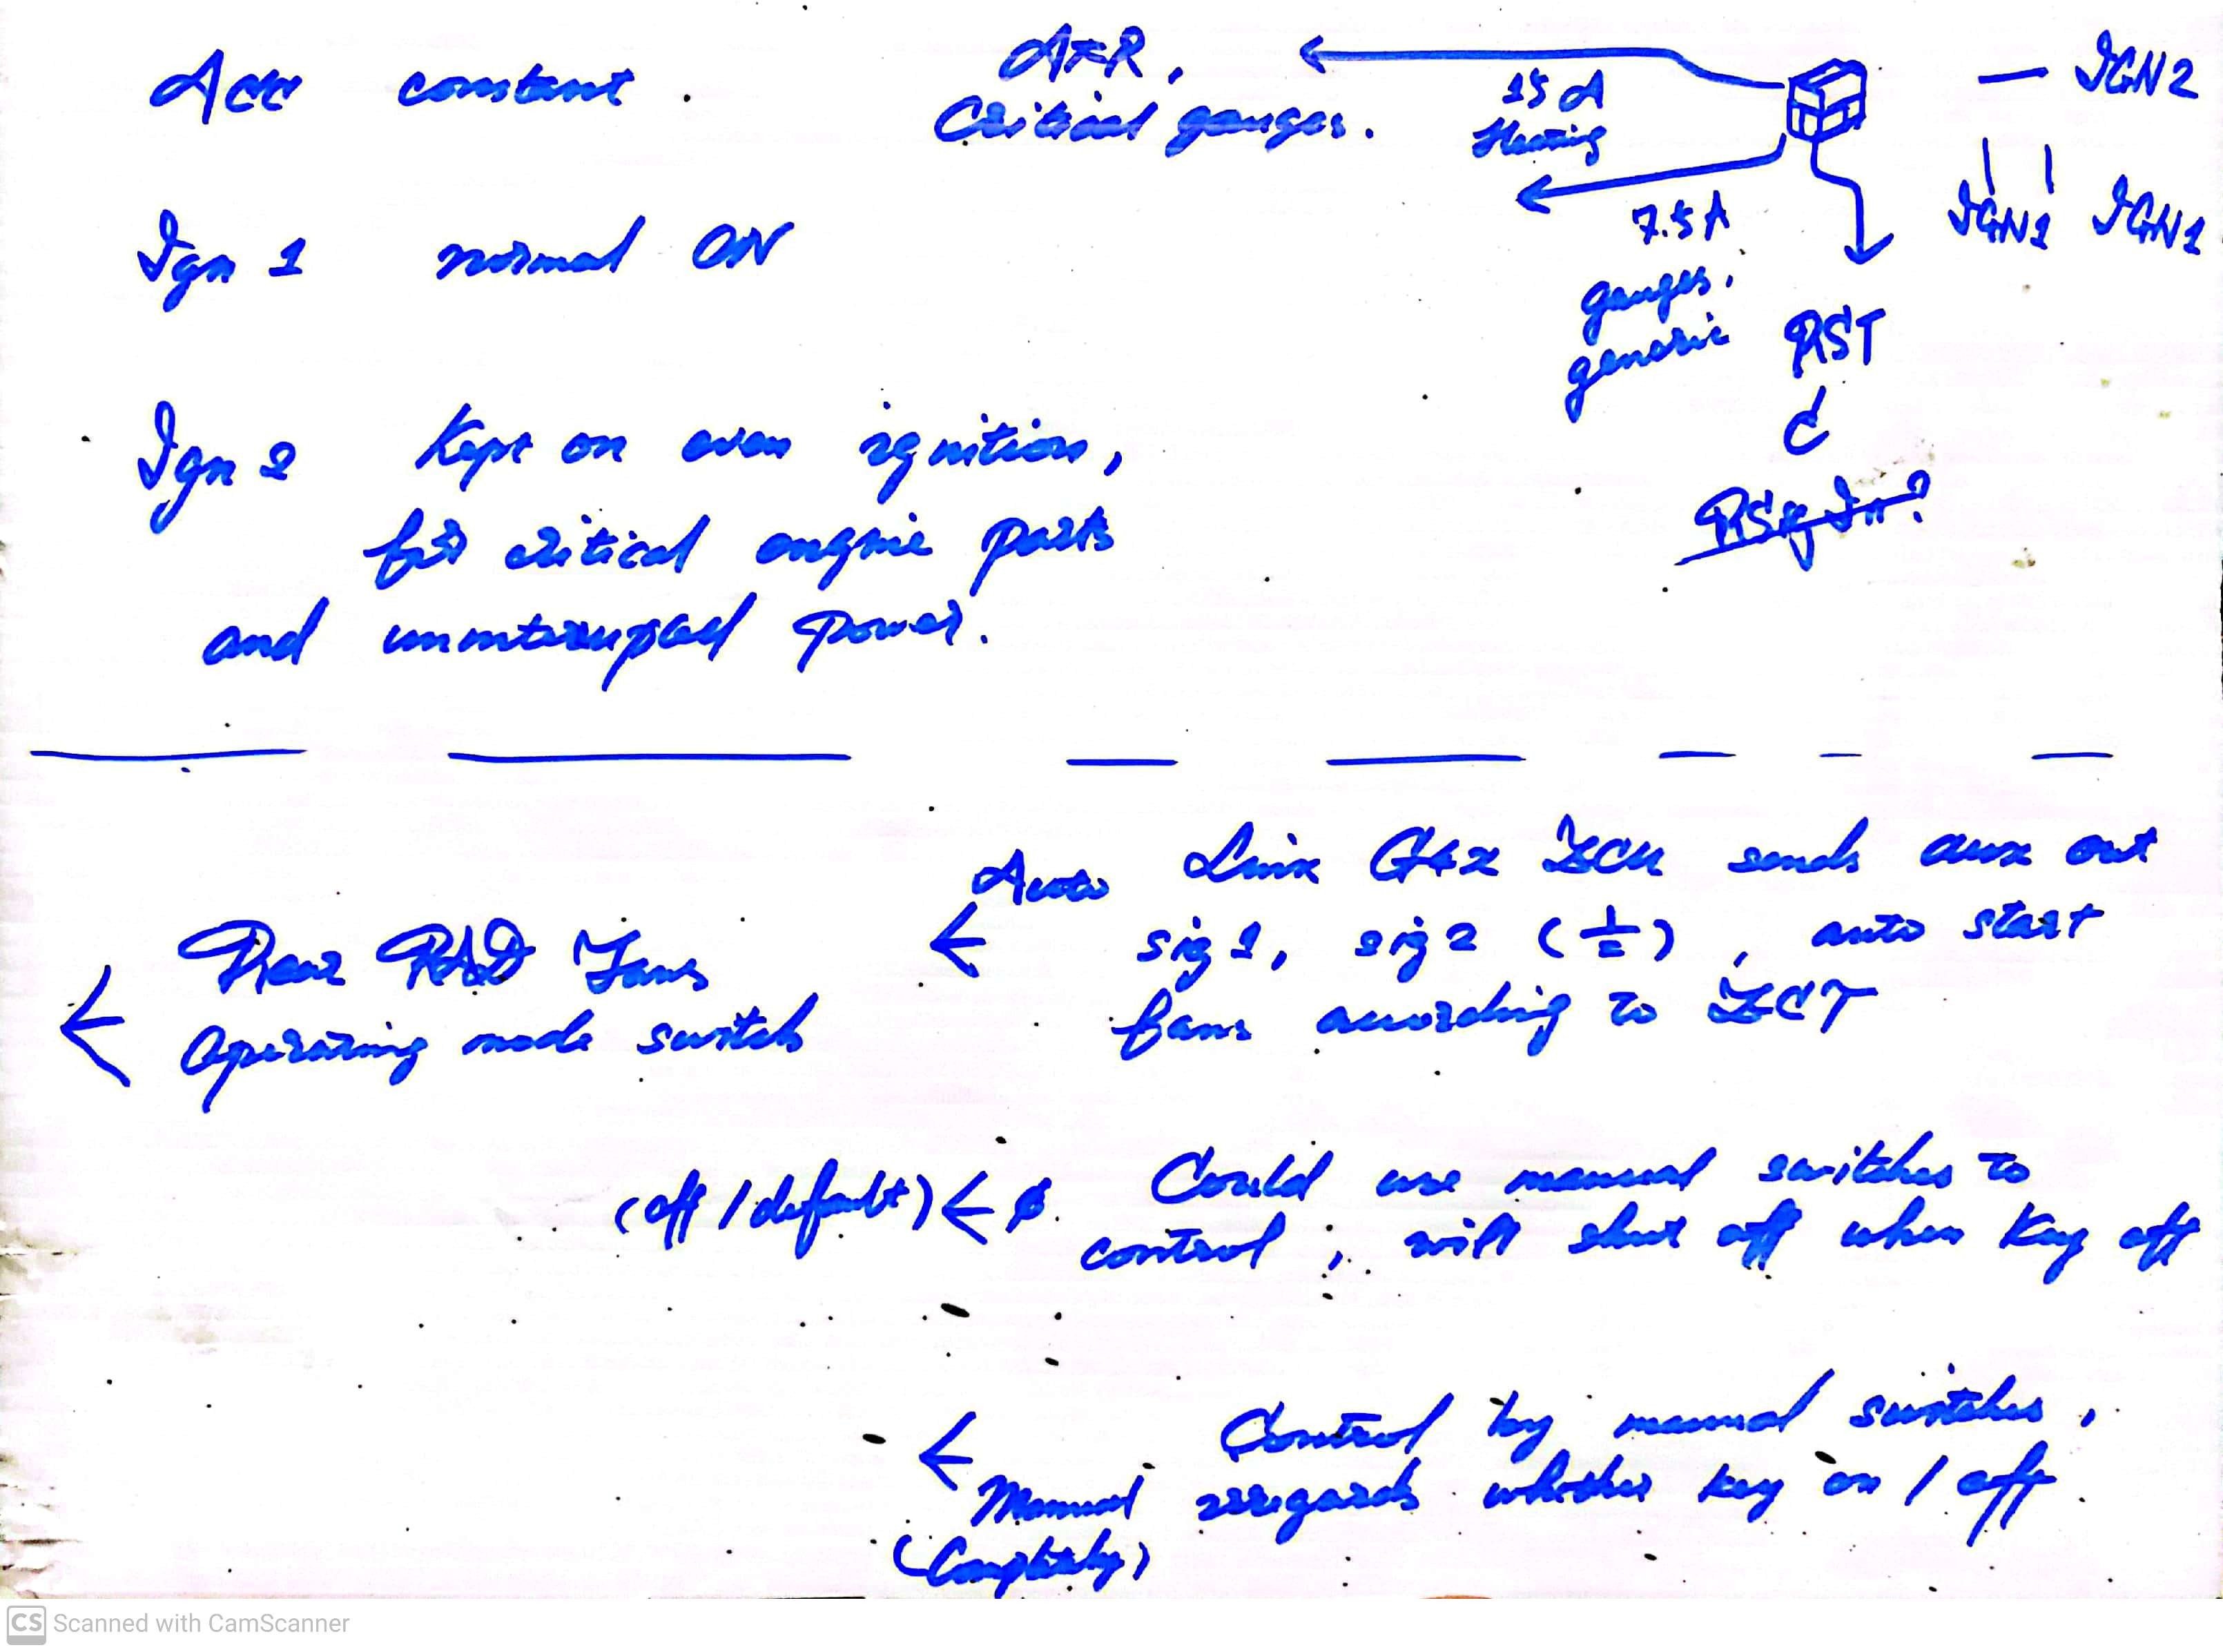 Acc constant.
Ign 1 normal ON
Ign 2 Kept on even ignition,
for critical engine parts
and uninterrupted power.
AFR,
Critical gauges.
15A
7.5A
gauges.
generic
RST
IGN2
IGN1 IGN1
Rear RAD Fans
Operating mode switch
Auto
Link G4x ECU sends aux out
sig 1, sig 2 (1/2), auto start
fans according to ECT
(off / default)
Could use manual switches to
control; will shut off when Key off
Manual
(Completely)
Control by manual switches,
whether key on / off.
CS Scanned with CamScanner